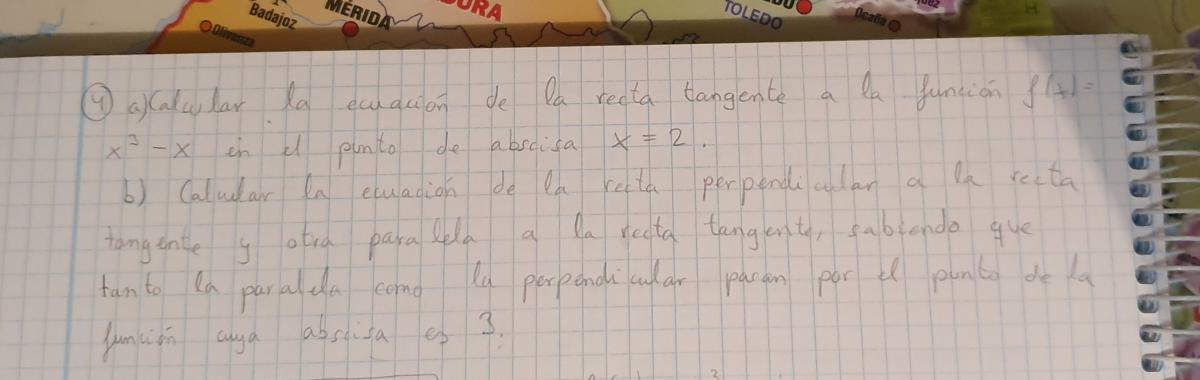 Badajoz
MÉRIDA
URA
TOLEDO
Ocaña
Olivenza
4 a) Calcular la ecuación de la recta tangente a la función f(x)=
x² - x en el punto de abscisa x = 2.
b) Calcular la ecuación de la recta perpendicular a la recta
tangente y otra paralela a la recta tangente, sabiendo que
tanto la paralela como la perpendicular pasan por el punto de la
función cuya abscisa es 3.